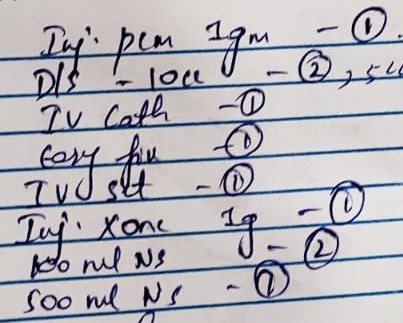 Inj. pcm 1gm - ①
D/s - 10cc - ②, 5cc
IV Cath - ①
Easy fix - ①
IV set - ①
Inj. Xone 1g - ①
100 ml NS - ②
500 ml NS - ①